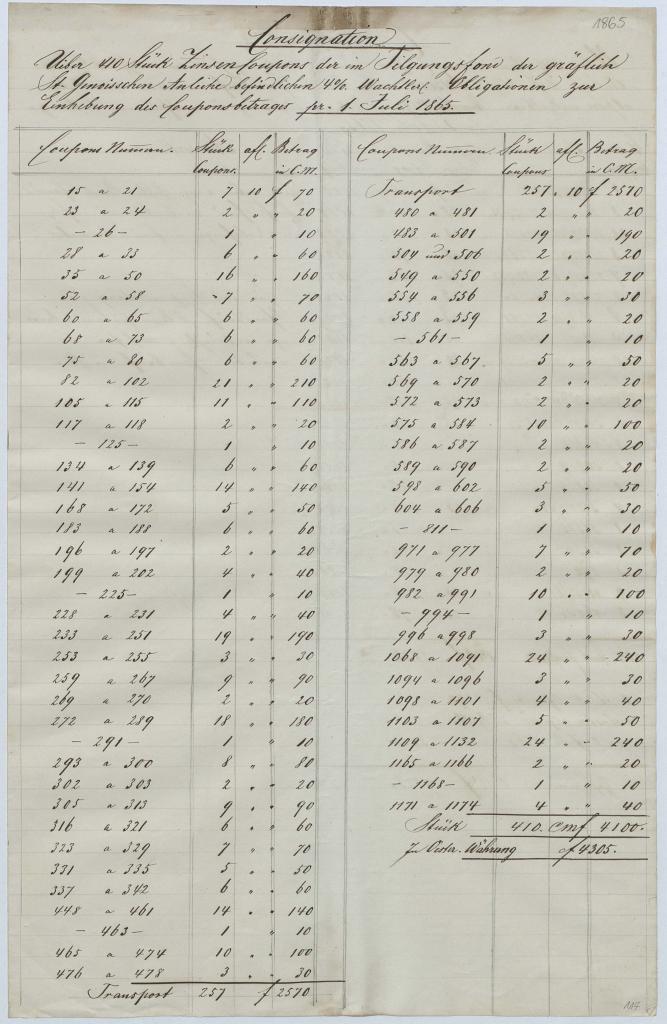 1865
Consignation
Über 410 Stück Zinsen Coupons der im Tilgungsfond der gräflich
St. Genoisschen Anleihe befindlichen 4% Obligationen zur
Einhebung des Couponsbetrages pr. 1. Juli 1865.
Coupons Numern. Stück Coupons. a fl. Betrag in C.M.
15 a 21 7 10 f 70
23 a 24 2 " " 20
- 26 - 1 " 10
28 a 33 6 " " 60
35 a 50 16 " " 160
52 a 58 7 " " 70
60 a 65 6 " " 60
68 a 73 6 " " 60
75 a 80 6 " " 60
82 a 102 21 " " 210
105 a 115 11 " " 110
117 a 118 2 " " 20
- 125 - 1 " 10
134 a 139 6 " " 60
141 a 154 14 " " 140
168 a 172 5 " " 50
183 a 188 6 " " 60
196 a 197 2 " " 20
199 a 202 4 " " 40
- 225 - 1 " 10
228 a 231 4 " " 40
233 a 251 19 " " 190
253 a 255 3 " " 30
259 a 267 9 " " 90
269 a 270 2 " " 20
272 a 289 18 " " 180
- 291 - 1 " 10
293 a 300 8 " " 80
302 a 303 2 " " 20
305 a 313 9 " " 90
316 a 321 6 " " 60
323 a 329 7 " " 70
331 a 335 5 " " 50
337 a 342 6 " " 60
448 a 461 14 " " 140
- 463 - 1 " 10
465 a 474 10 " " 100
476 a 478 3 " " 30
Transport 257 f 2570
Coupons Numern. Stück Coupons a fl. Betrag in C.M.
Transport 257 " 10 f 2570
480 a 481 2 " " 20
483 a 501 19 " " 190
504 und 506 2 " " 20
549 a 550 2 " " 20
554 a 556 3 " " 30
558 a 559 2 " " 20
- 561 - 1 " 10
563 a 567 5 " " 50
569 a 570 2 " " 20
572 a 573 2 " " 20
575 a 584 10 " " 100
586 a 587 2 " " 20
589 a 590 2 " " 20
598 a 602 5 " " 50
604 a 606 3 " " 30
- 811 - 1 " 10
971 a 977 7 " " 70
979 a 980 2 " " 20
982 a 991 10 " " 100
- 994 - 1 " 10
996 a 998 3 " " 30
1068 a 1091 24 " " 240
1094 a 1096 3 " " 30
1098 a 1101 4 " " 40
1103 a 1107 5 " " 50
1109 a 1132 24 " " 240
1165 a 1166 2 " " 20
- 1168 - 1 " 10
1171 a 1174 4 " " 40
Stück 410. Cmf 4100.
In Oester. Währung of 4305.